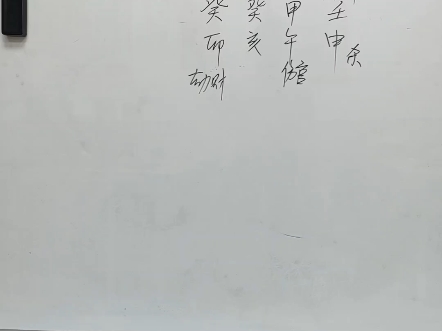 癸 癸 甲 壬
卯 亥 午 申 杀
劫财 伤官